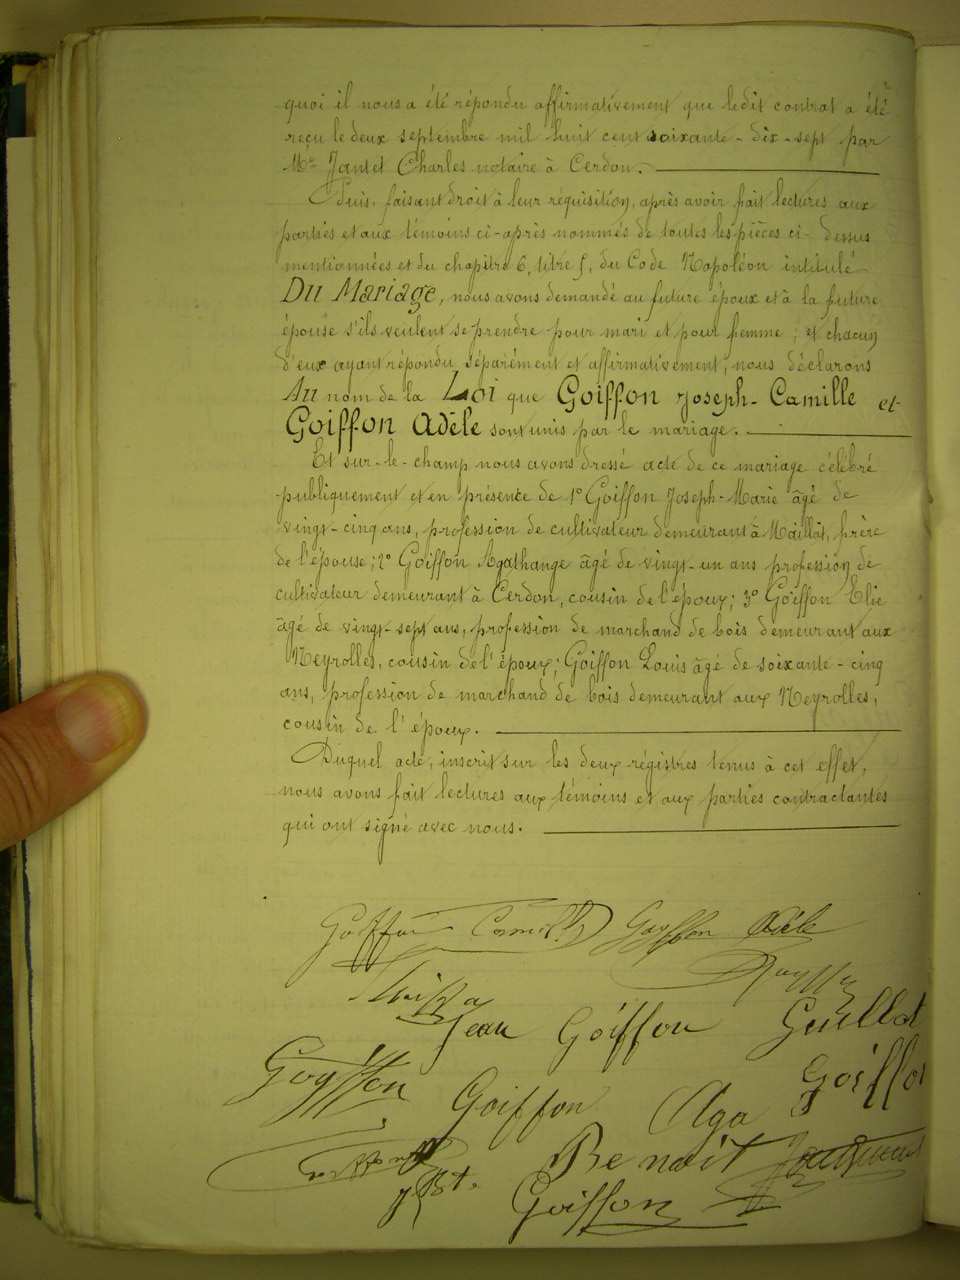 quoi il nous a été répondu affirmativement que ledit contrat a été
reçu le deux septembre mil huit cent soixante-dix-sept par
Me Jantet Charles notaire à Cerdon.
Puis, faisant droit à leur réquisition, après avoir fait lectures aux
parties et aux témoins ci-après nommés de toutes les pièces ci-dessus
mentionnées et du chapitre 6, titre 5, du Code Napoléon intitulé
Du Mariage, nous avons demandé au future époux et à la future
épouse s'ils veulent se prendre pour mari et pour femme; et chacun
d'eux ayant répondu séparément et affirmativement, nous déclarons
Au nom de la Loi que Goiffon Joseph-Camille et
Goiffon Adèle sont unis par le mariage.
Et sur-le-champ nous avons dressé acte de ce mariage célébré
publiquement et en présence de 1° Goiffon Joseph-Marie âgé de
vingt-cinq ans, profession de cultivateur demeurant à Maillat, frère
de l'épouse; 2° Goiffon Agathange âgé de vingt-un ans profession de
cultivateur demeurant à Cerdon, cousin de l'époux; 3° Goiffon Elie
âgé de vingt-sept ans, profession de marchand de bois demeurant aux
Neyrolles, cousin de l'époux; Goiffon Louis âgé de soixante-cinq
ans, profession de marchand de bois demeurant aux Neyrolles,
cousin de l'époux.
Duquel acte, inscrit sur les deux régistres tenus à cet effet,
nous avons fait lectures aux témoins et aux parties contractantes
qui ont signé avec nous.
Goiffon Camille Goyffon Adèle
Jean Goiffon Guillot
Goyffon Goiffon Aga
Benoit
Goiffon